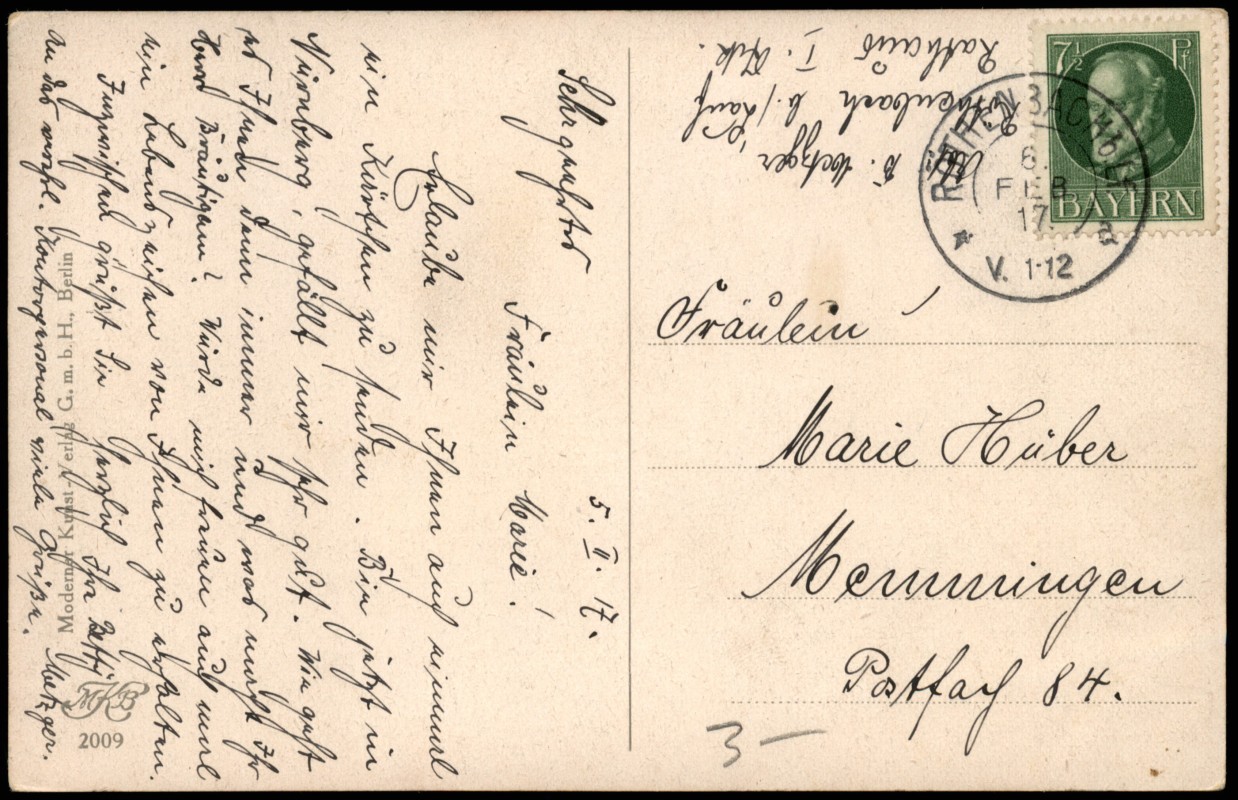 5. II. 17.
Sehr geehrtes
Fräulein Marie!
Erlaube mir Ihnen auch einmal
ein Kärtchen zu senden. Bin jetzt in
Nürnberg, gefällt mir sehr gut. Wie geht
es Ihnen denn immer und was macht Ihr
Herr Bräutigam? Würde mich freuen auch mal
ein Lebenszeichen von Ihnen zu erhalten.
Inzwischen grüßt Sie herzlich Ihr
Metzger.
An das werthl. Kontorpersonal viele Grüße.
Moderner Kunst-Verlag G. m. b. H., Berlin
MKB
2009
Abs. B. Metzger
Röthenbach b/Lauf
Rathaus I. Stk.
7½ Pf
BAYERN
RÖTHENBACH b/L
6.
FEB
17.
V. 1-12
a
Fräulein
Marie Huber
Memmingen
Postfach 84.
3 —